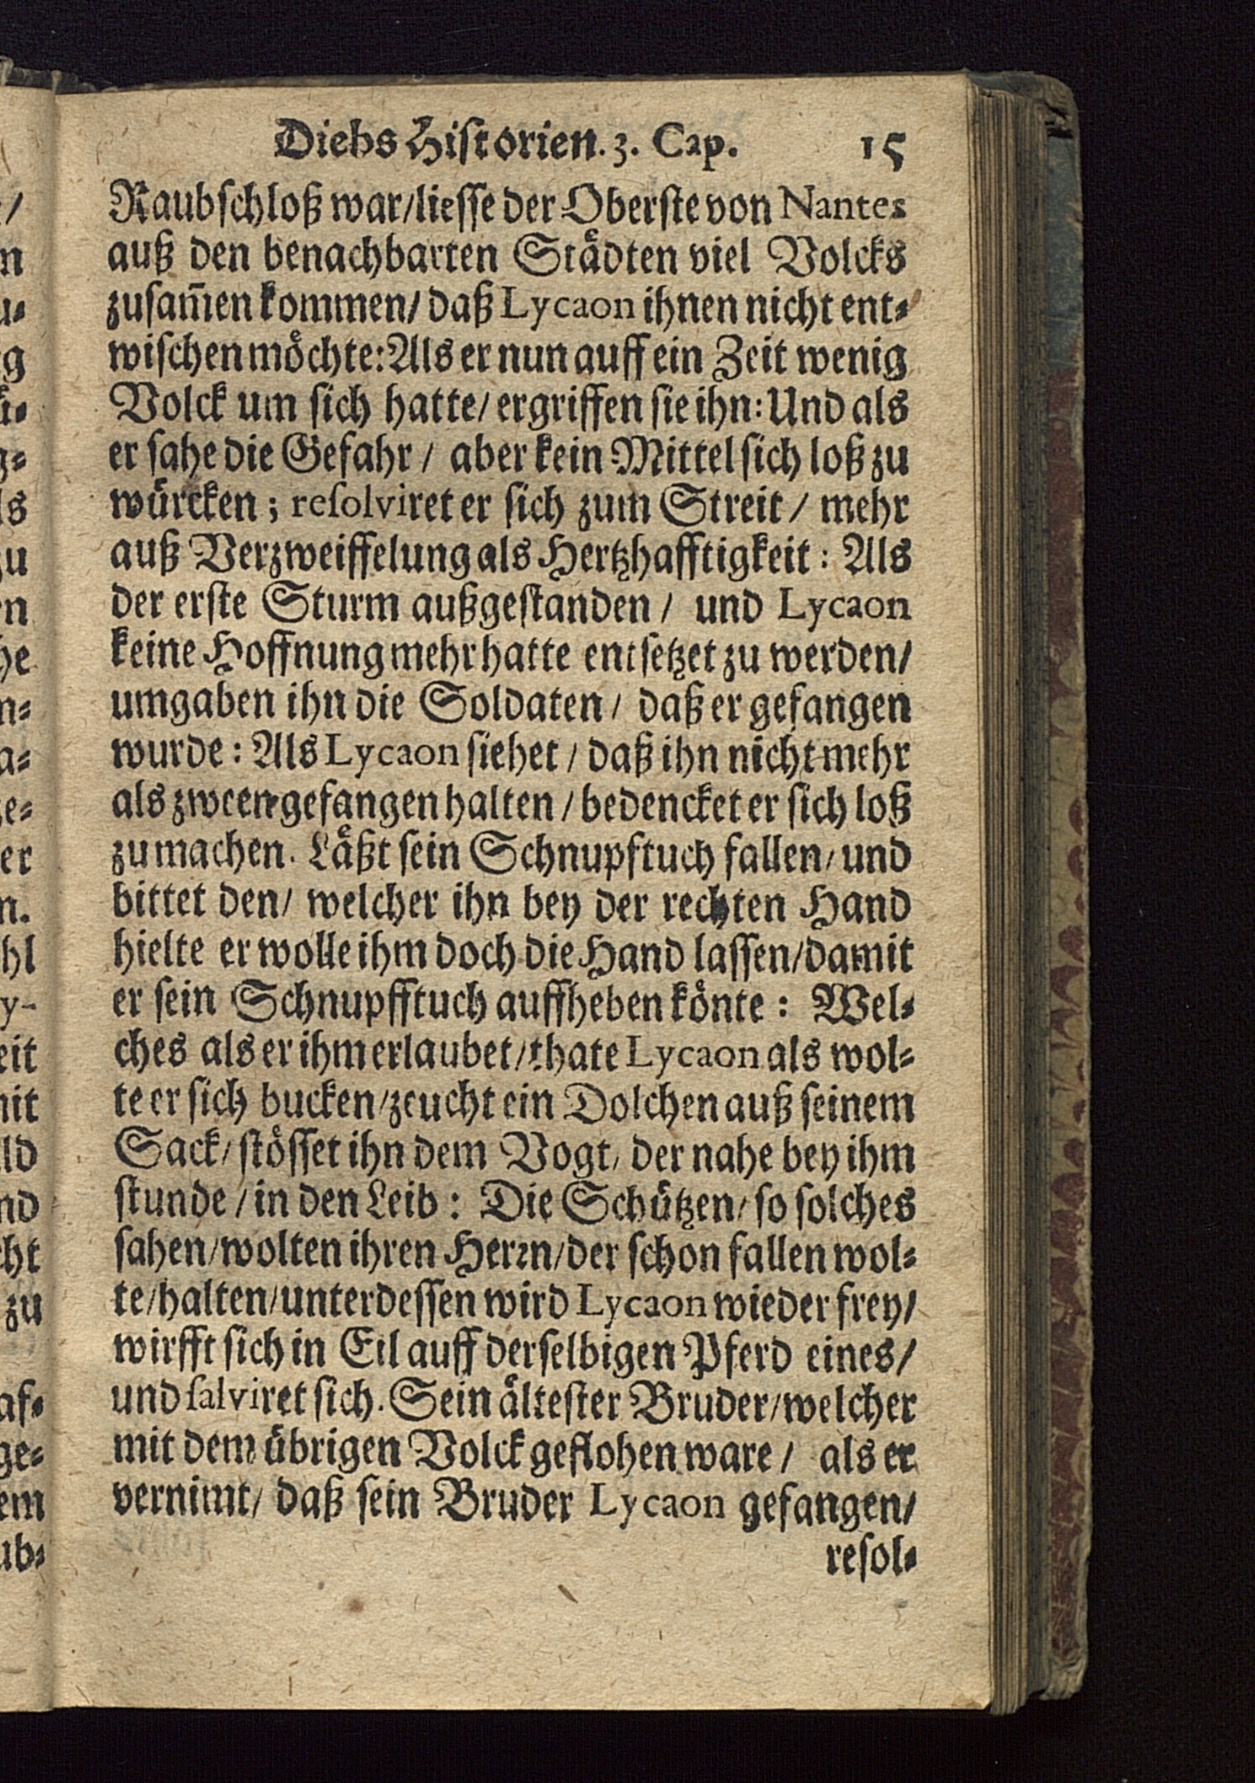 Diebs Historien. 3. Cap. 15
Raubschloß war/liesse der Oberste von Nantes
auß den benachbarten Städten viel Volcks
zusam̃en kommen/ daß Lycaon ihnen nicht ent-
wischen möchte: Als er nun auff ein Zeit wenig
Volck um sich hatte/ ergriffen sie ihn: Und als
er sahe die Gefahr / aber kein Mittel sich loß zu
würcken; resolviret er sich zum Streit / mehr
auß Verzweiffelung als Hertzhafftigkeit: Als
der erste Sturm außgestanden / und Lycaon
keine Hoffnung mehr hatte entsetzet zu werden/
umgaben ihn die Soldaten / daß er gefangen
wurde: Als Lycaon siehet / daß ihn nicht mehr
als zween gefangen halten / bedencket er sich loß
zu machen. Läßt sein Schnupftuch fallen/ und
bittet den/ welcher ihn bey der rechten Hand
hielte er wolle ihm doch die Hand lassen/damit
er sein Schnupfftuch auffheben könte: Wel-
ches als er ihm erlaubet/thate Lycaon als wol-
te er sich bucken/zeucht ein Dolchen auß seinem
Sack/ stösset ihn dem Vogt/ der nahe bey ihm
stunde / in den Leib: Die Schützen/ so solches
sahen/wolten ihren Herrn/der schon fallen wol-
te/halten/unterdessen wird Lycaon wieder frey/
wirfft sich in Eil auff derselbigen Pferd eines/
und salviret sich. Sein ältester Bruder/welcher
mit dem übrigen Volck geflohen ware / als er
vernimt/ daß sein Bruder Lycaon gefangen/
resol-